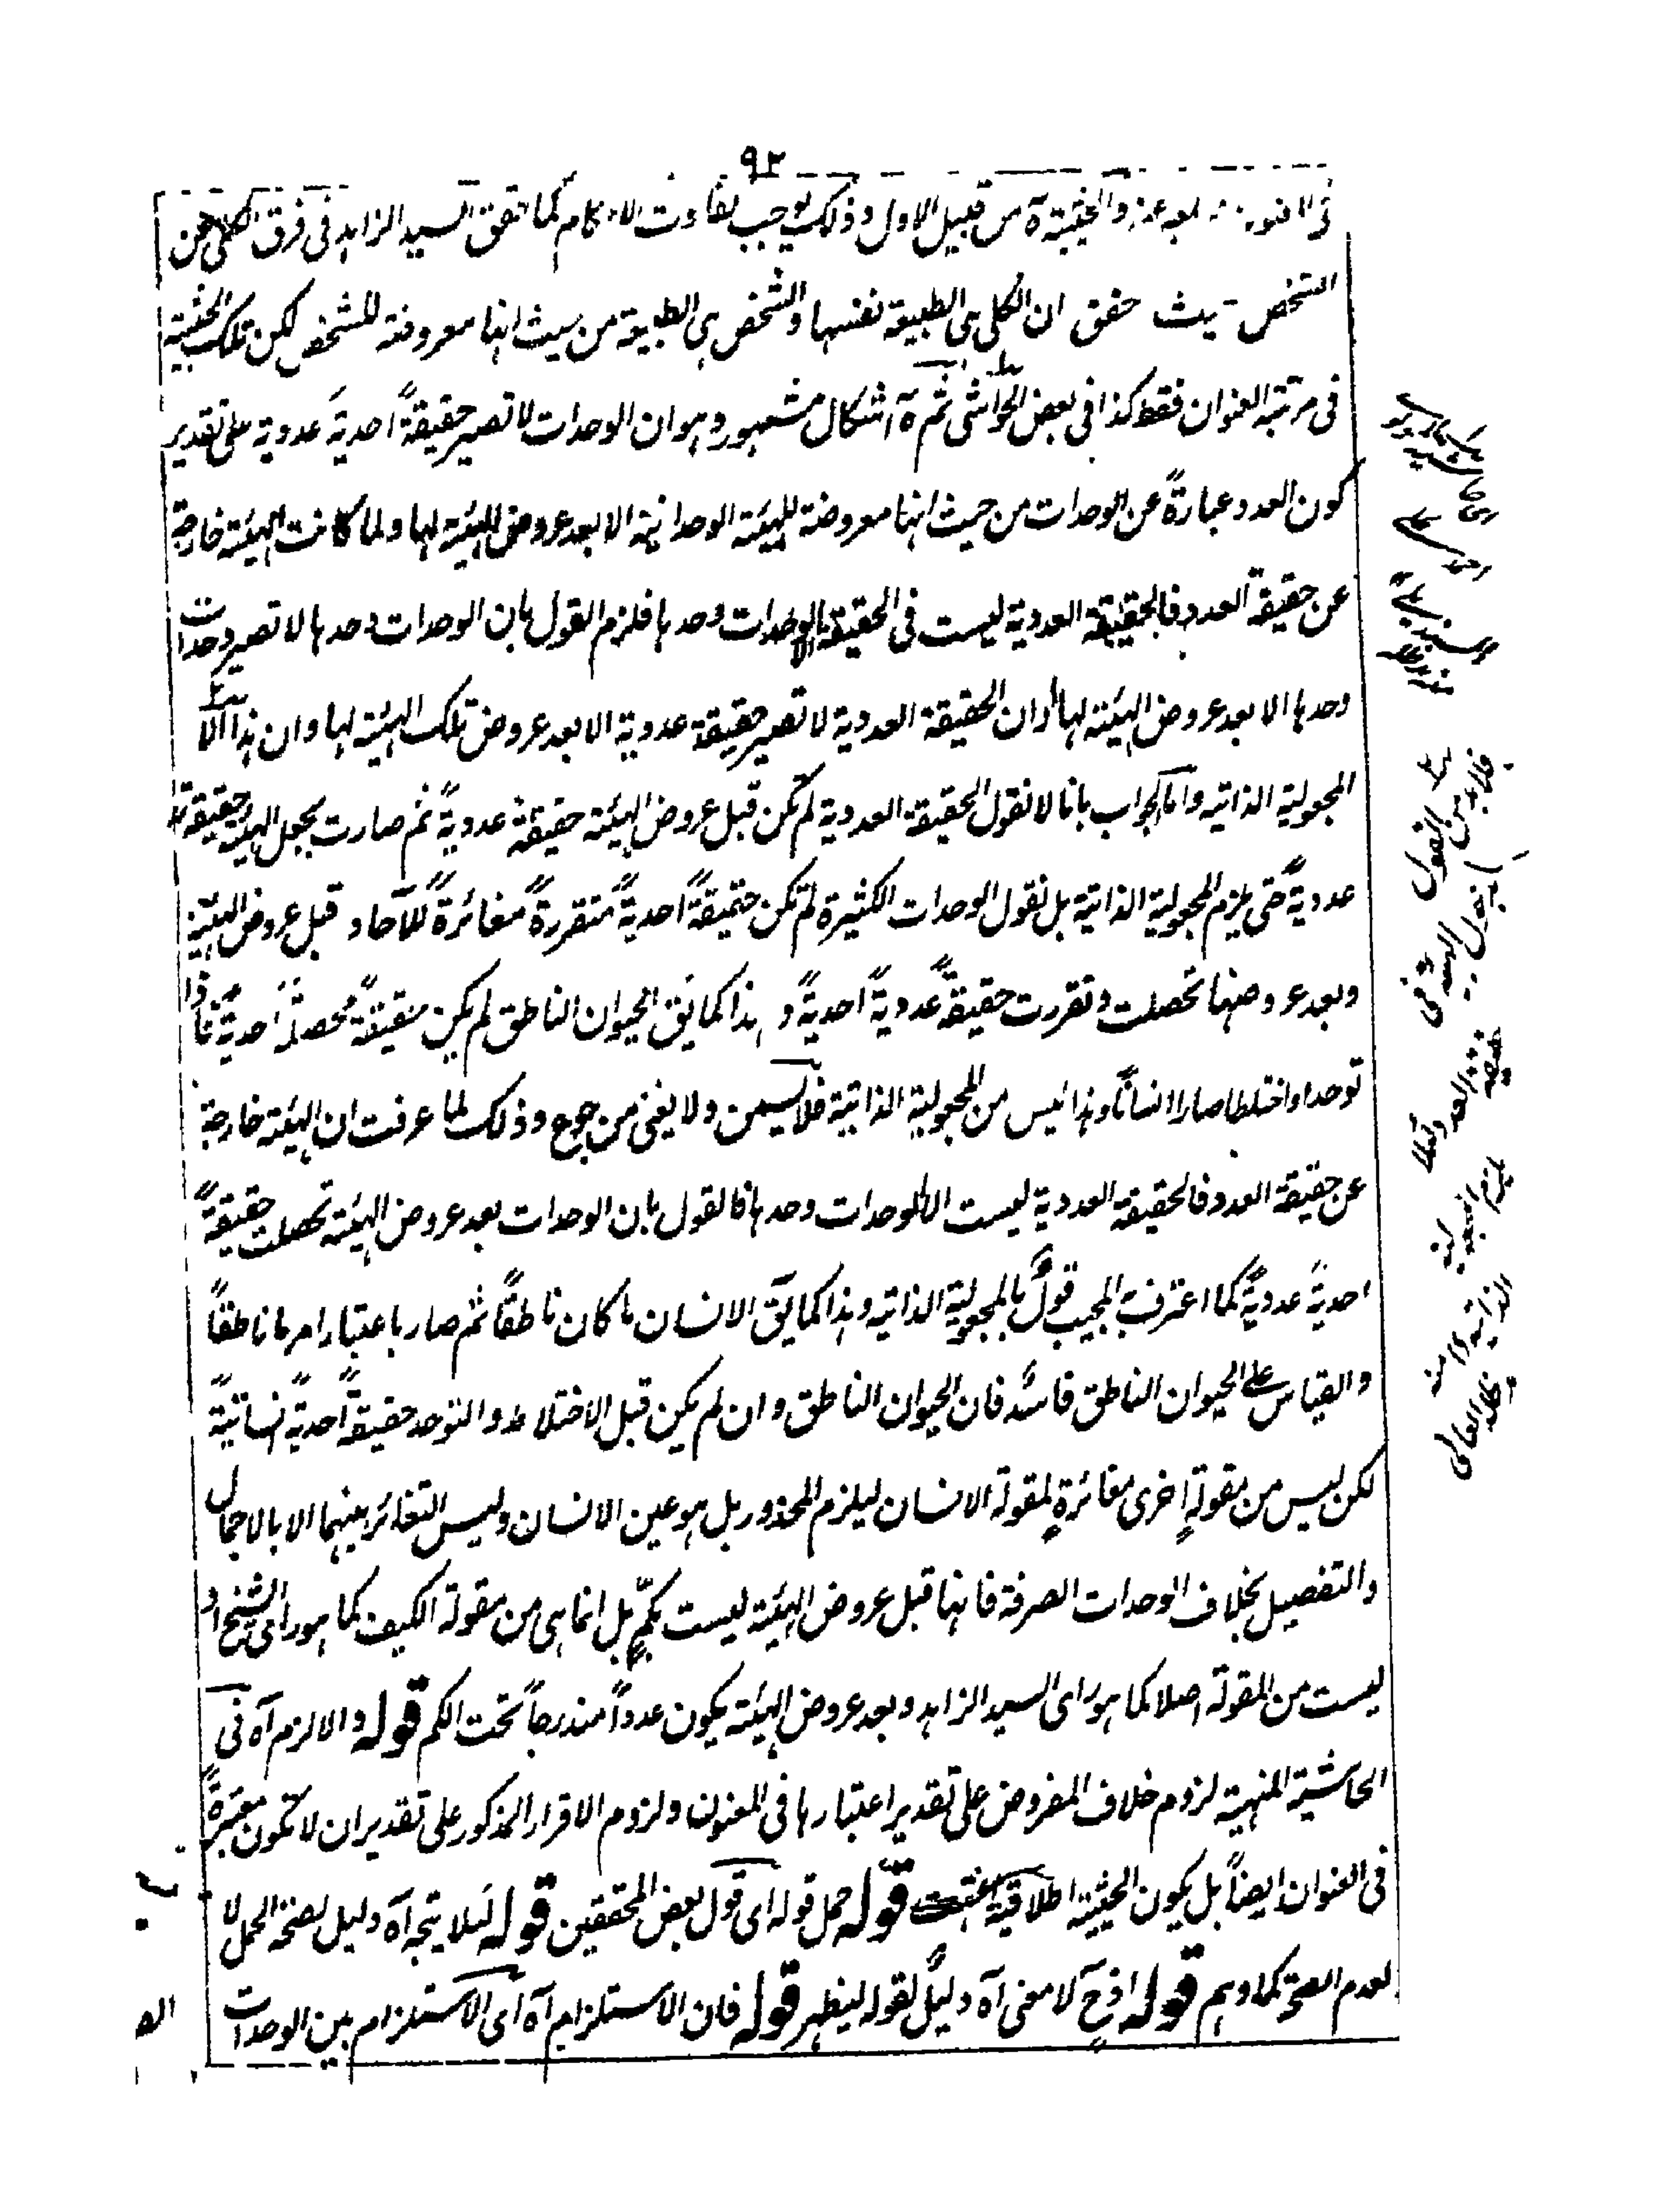 ٩٢
والحيثية آه من قبيل الاول وذلك يوجب تفاوت الاحكام كما حقق السيد الزاهد فى فرق الكلى عن
الشخص حيث حقق ان الكلى هى الطبيعة نفسها والشخص هى الطبيعة من حيث انها معروضة للشخص لكن تلك الحيثية
فى مرتبة العنوان فقط كذا فى بعض الحواشى ثم ههنا اشكال مشهور وهو ان الوحدات لا تصير حقيقةً احديةً عددية على تقدير
كون العدد عبارةً عن الوحدات من حيث انها معروضة للهيئة الوحدانية الا بعد عروض الهيئة لها ولما كانت الهيئة خارجة
عن حقيقة العدد فالحقيقة العددية ليست فى الحقيقة الا الوحدات وحدها فلزم القول بان الوحدات وحدها لا تصير وحدات
وحدها الا بعد عروض الهيئة لها وان الحقيقة العددية لا تصير حقيقة عددية الا بعد عروض تلك الهيئة لها وان هذا الا
المجعولية الذاتية واما الجواب بانا لا نقول الحقيقة العددية لم تكن قبل عروض الهيئة حقيقةً عدديةً ثم صارت بجعل الهيئة حقيقةً
عدديةً حتى يلزم المجعولية الذاتية بل نقول الوحدات الكثيرة لم تكن حقيقةً احديةً متقررةً مغائرةً للآحاد قبل عروض الهيئة
وبعد عروضها تحصلت وتقررت حقيقةً عدديةً احديةً وهذا كما يق الحيوان الناطق لم يكن حقيقةً محصلةً احديةً فاذا
توحدا واختلطا صارا انسانًا وهذا ليس من المجعولية الذاتية فلا يسمن ولا يغنى من جوع وذلك لما عرفت ان الهيئة خارجة
عن حقيقة العدد فالحقيقة العددية ليست الا الوحدات وحدها فالقول بان الوحدات بعد عروض الهيئة تحصلت حقيقةً
احديةً عدديةً كما اعترف به المجيب قولٌ بالمجعولية الذاتية وهذا كما يق الانسان ما كان ناطقًا ثم صار باعتبار امر ما ناطقًا
والقياس على الحيوان الناطق فاسد فان الحيوان الناطق وان لم يكن قبل الاختلاط والتوحد حقيقةً احديةً انسانيةً
لكن ليس من مقولةٍ اخرى مغائرةٍ لمقولة الانسان ليلزم المحذور بل هو عين الانسان وليس التغائر بينهما الا بالاجمال
والتفصيل بخلاف الوحدات الصرفة فانها قبل عروض الهيئة ليست بكمٍّ بل انما هى من مقولة الكيف كما هو راى الشيخ او
ليست من المقولة اصلا كما هو راى السيد الزاهد وبعد عروض الهيئة يكون عددًا مندرجًا تحت الكم قوله والا لزم آه فى
الحاشية المنهية لزوم خلاف المفروض على تقدير اعتبارها فى المعنون ولزوم الاقرار المذكور على تقدير ان لا تكون معتبرةً
فى العنوان ايضًا بل يكون الحيثية اطلاقية انتهت قوله حمل قوله اى قول بعض المحققين قوله لئلا يتجه آه دليل لصحة الحمل لا
لعدم الصحة كما وهم قوله اذ ح لا معنى آه دليلٌ لقوله ليظهر قوله فان الاستلزام آه اى الاستلزام بين الوحدات
فلا بد من القول
بدخول الهيئة فى
حقيقة العدد لئلا
يلزم المجعولية
الذاتية